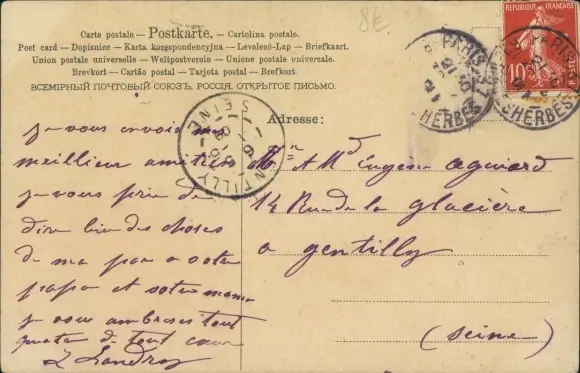 Carte postale — Postkarte. — Cartolina postale.
Post card — Dopisnice — Karta korespondencyjna — Levelező-Lap — Briefkaart.
Union postale universelle — Weltpostverein — Unione postale universale.
Brevkort — Cartão postal — Tarjeta postal — Brefkort.
ВСЕМІРНЫЙ ПОЧТОВЫЙ СОЮЗЪ, РОССІЯ. ОТКРЫТОЕ ПИСЬМО.
8E
REPUBLIQUE FRANÇAISE
10
POSTES
PARIS
CHERBES
PARIS
CHERBES
GENTILLY
SEINE
Adresse:
je vous envois ma
meilleur amitié
je vous prie de
dire bien des choses
de ma par a votre
papa et votre maman
je vous embrasse tout
quatre de tout cœur
L Landroy
Mr et Md Eugène
14 Rue de la glacière
a gentilly
(Seine)